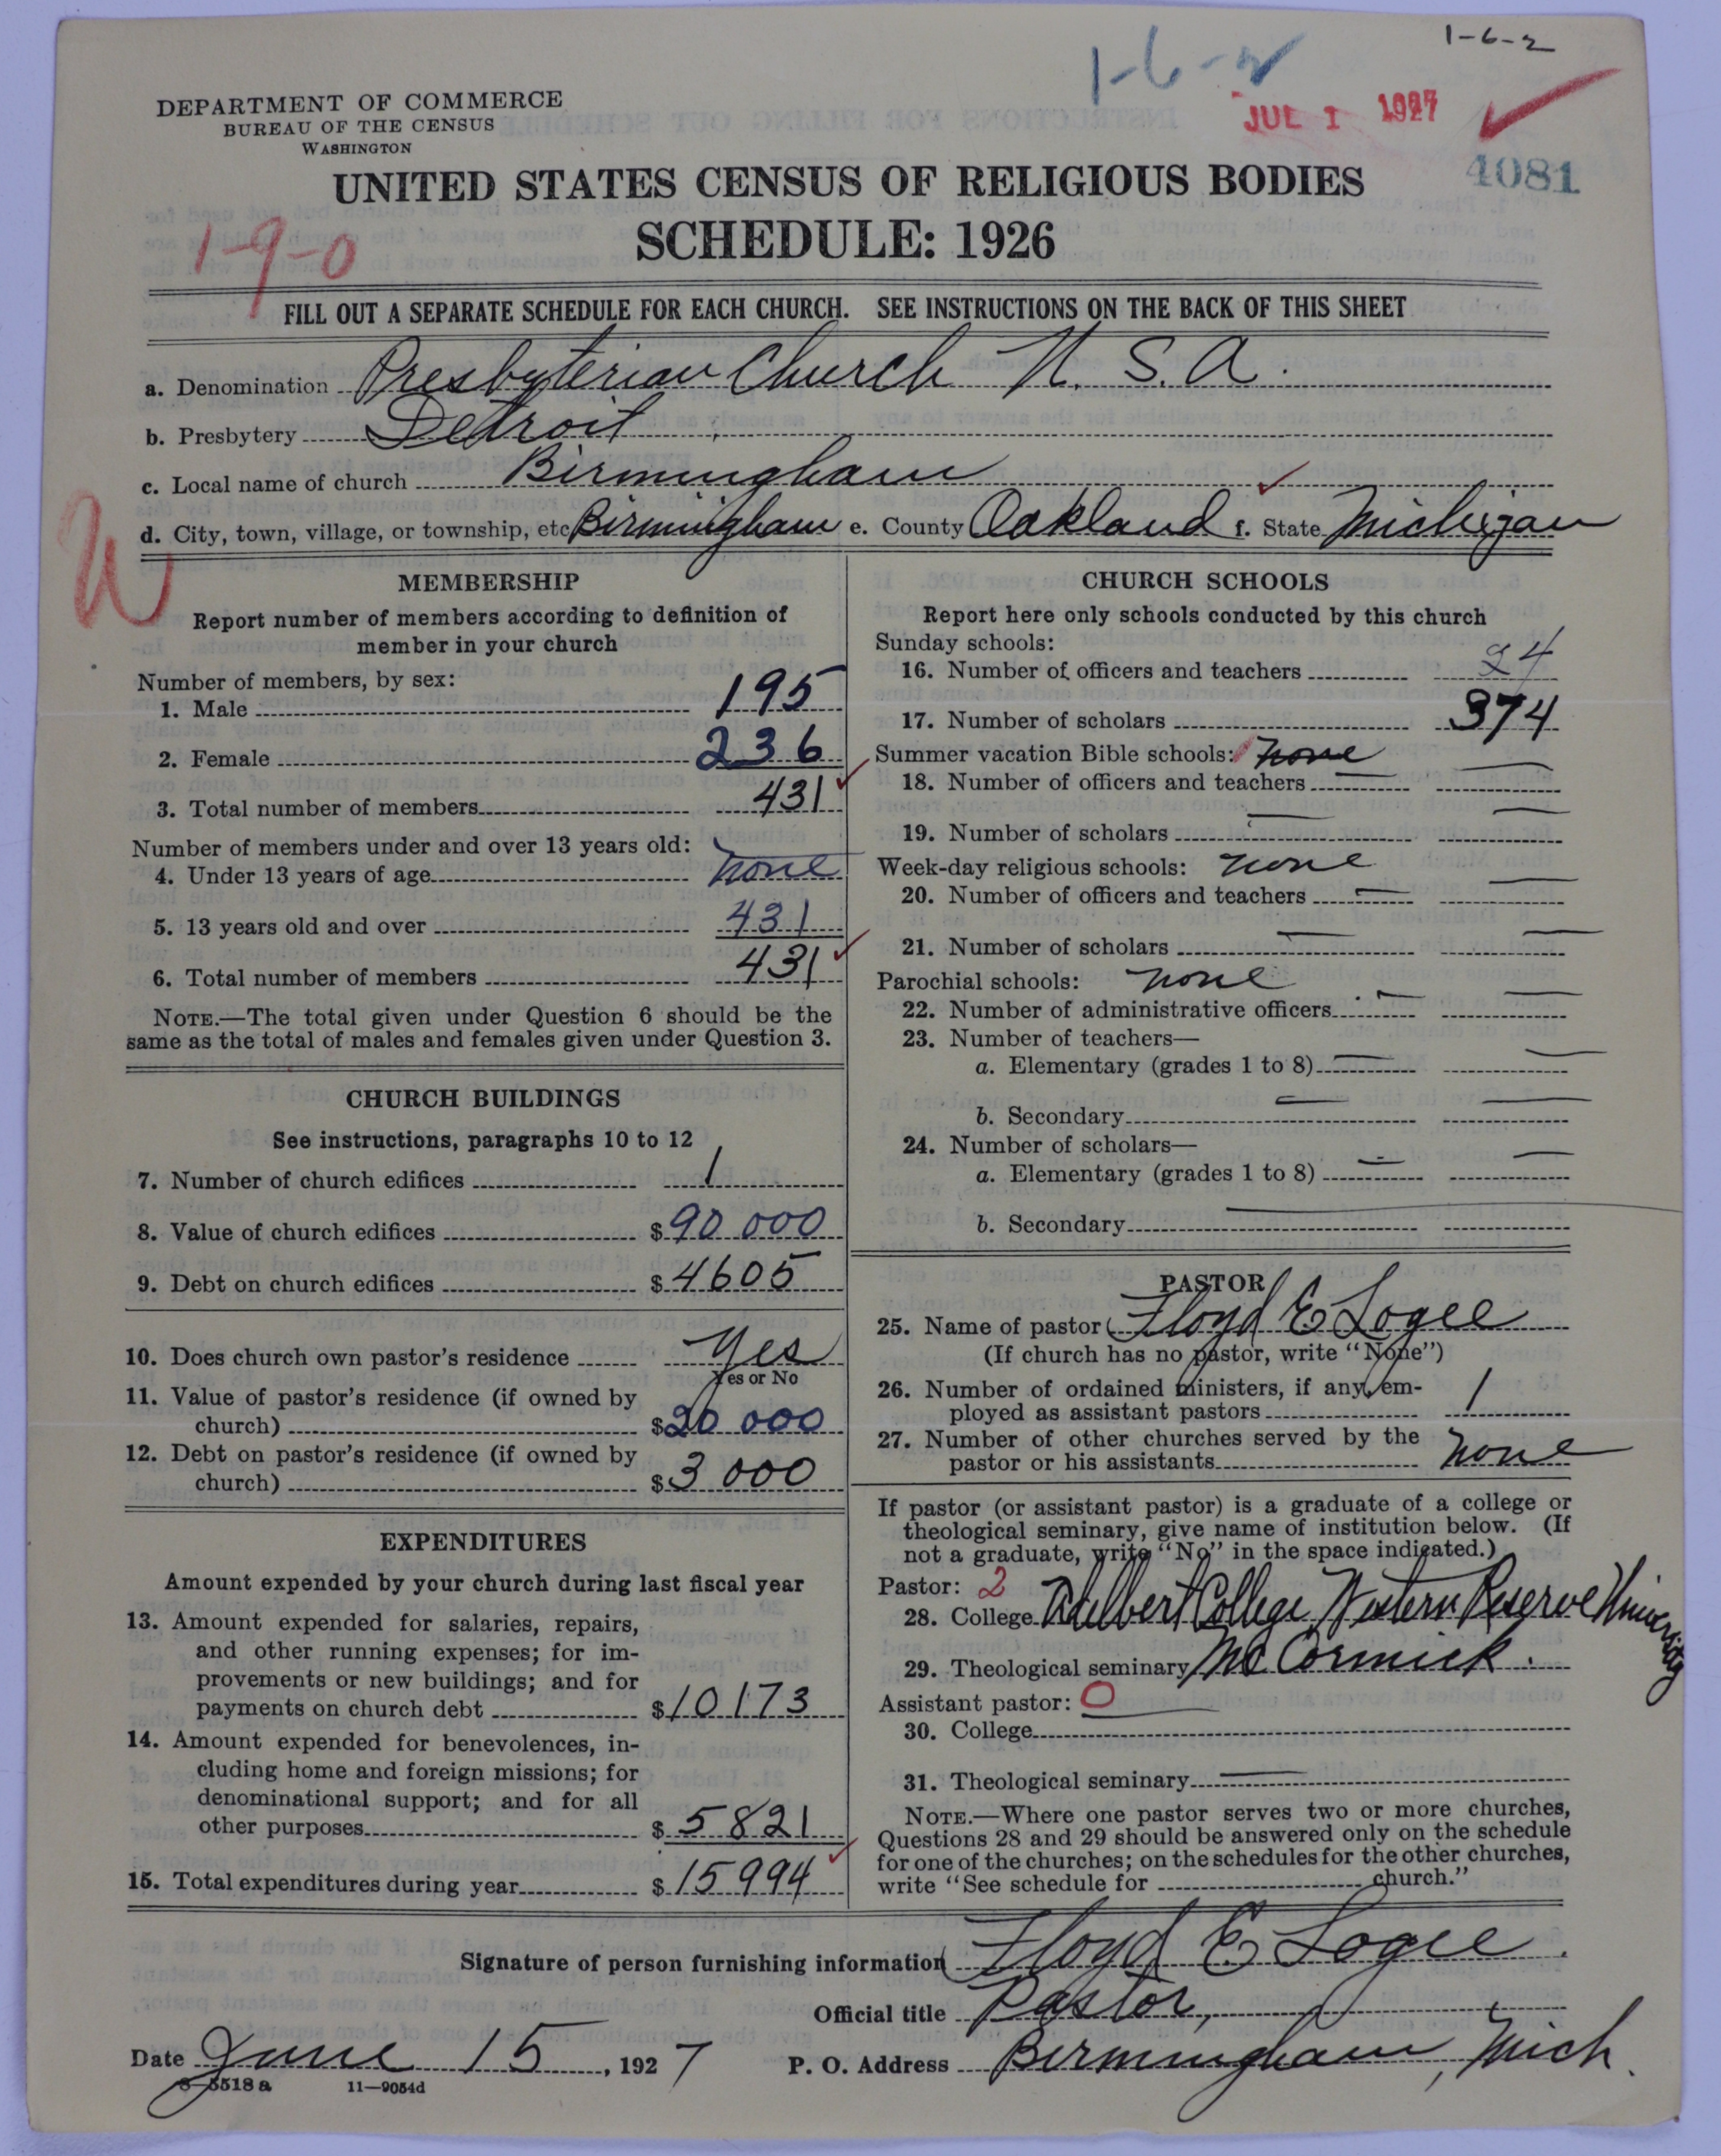 1-6-2
1-6-2
JUL 1 1927
4081
DEPARTMENT OF COMMERCE
BUREAU OF THE CENSUS
WASHINGTON
UNITED STATES CENSUS OF RELIGIOUS BODIES
SCHEDULE: 1926
1-9-0
FILL OUT A SEPARATE SCHEDULE FOR EACH CHURCH. SEE INSTRUCTIONS ON THE BACK OF THIS SHEET
a. Denomination Presbyterian Church U. S. A.
b. Presbytery Detroit
c. Local name of church Birmingham
d. City, town, village, or township, etc Birmingham e. County Oakland f. State Michigan
W
MEMBERSHIP
Report number of members according to definition of
member in your church
Number of members, by sex:
1. Male 195
2. Female 236
3. Total number of members 431
Number of members under and over 13 years old:
4. Under 13 years of age none
5. 13 years old and over 431
6. Total number of members 431
NOTE.—The total given under Question 6 should be the
same as the total of males and females given under Question 3.
CHURCH BUILDINGS
See instructions, paragraphs 10 to 12
7. Number of church edifices 1
8. Value of church edifices $90 000
9. Debt on church edifices $4605
10. Does church own pastor's residence Yes
Yes or No
11. Value of pastor's residence (if owned by
church) $20 000
12. Debt on pastor's residence (if owned by
church) $3 000
EXPENDITURES
Amount expended by your church during last fiscal year
13. Amount expended for salaries, repairs,
and other running expenses; for im-
provements or new buildings; and for
payments on church debt $10173
14. Amount expended for benevolences, in-
cluding home and foreign missions; for
denominational support; and for all
other purposes $5821
15. Total expenditures during year $15994
CHURCH SCHOOLS
Report here only schools conducted by this church
Sunday schools:
16. Number of officers and teachers 24
17. Number of scholars 374
Summer vacation Bible schools: none
18. Number of officers and teachers —
19. Number of scholars —
Week-day religious schools: none
20. Number of officers and teachers —
21. Number of scholars —
Parochial schools: none
22. Number of administrative officers —
23. Number of teachers—
a. Elementary (grades 1 to 8) —
b. Secondary —
24. Number of scholars—
a. Elementary (grades 1 to 8) —
b. Secondary —
PASTOR
25. Name of pastor Floyd E Logee
(If church has no pastor, write "None")
26. Number of ordained ministers, if any, em-
ployed as assistant pastors 1
27. Number of other churches served by the
pastor or his assistants none
If pastor (or assistant pastor) is a graduate of a college or
theological seminary, give name of institution below. (If
not a graduate, write "No" in the space indicated.)
Pastor: 2
28. College Adelbert College, Western Reserve University
29. Theological seminary McCormick.
Assistant pastor: 0
30. College
31. Theological seminary —
NOTE.—Where one pastor serves two or more churches,
Questions 28 and 29 should be answered only on the schedule
for one of the churches; on the schedules for the other churches,
write "See schedule for church."
Signature of person furnishing information Floyd E. Logee.
Official title Pastor,
Date June 15, 1927 P. O. Address Birmingham, Mich.
8-5518 a 11—9054d